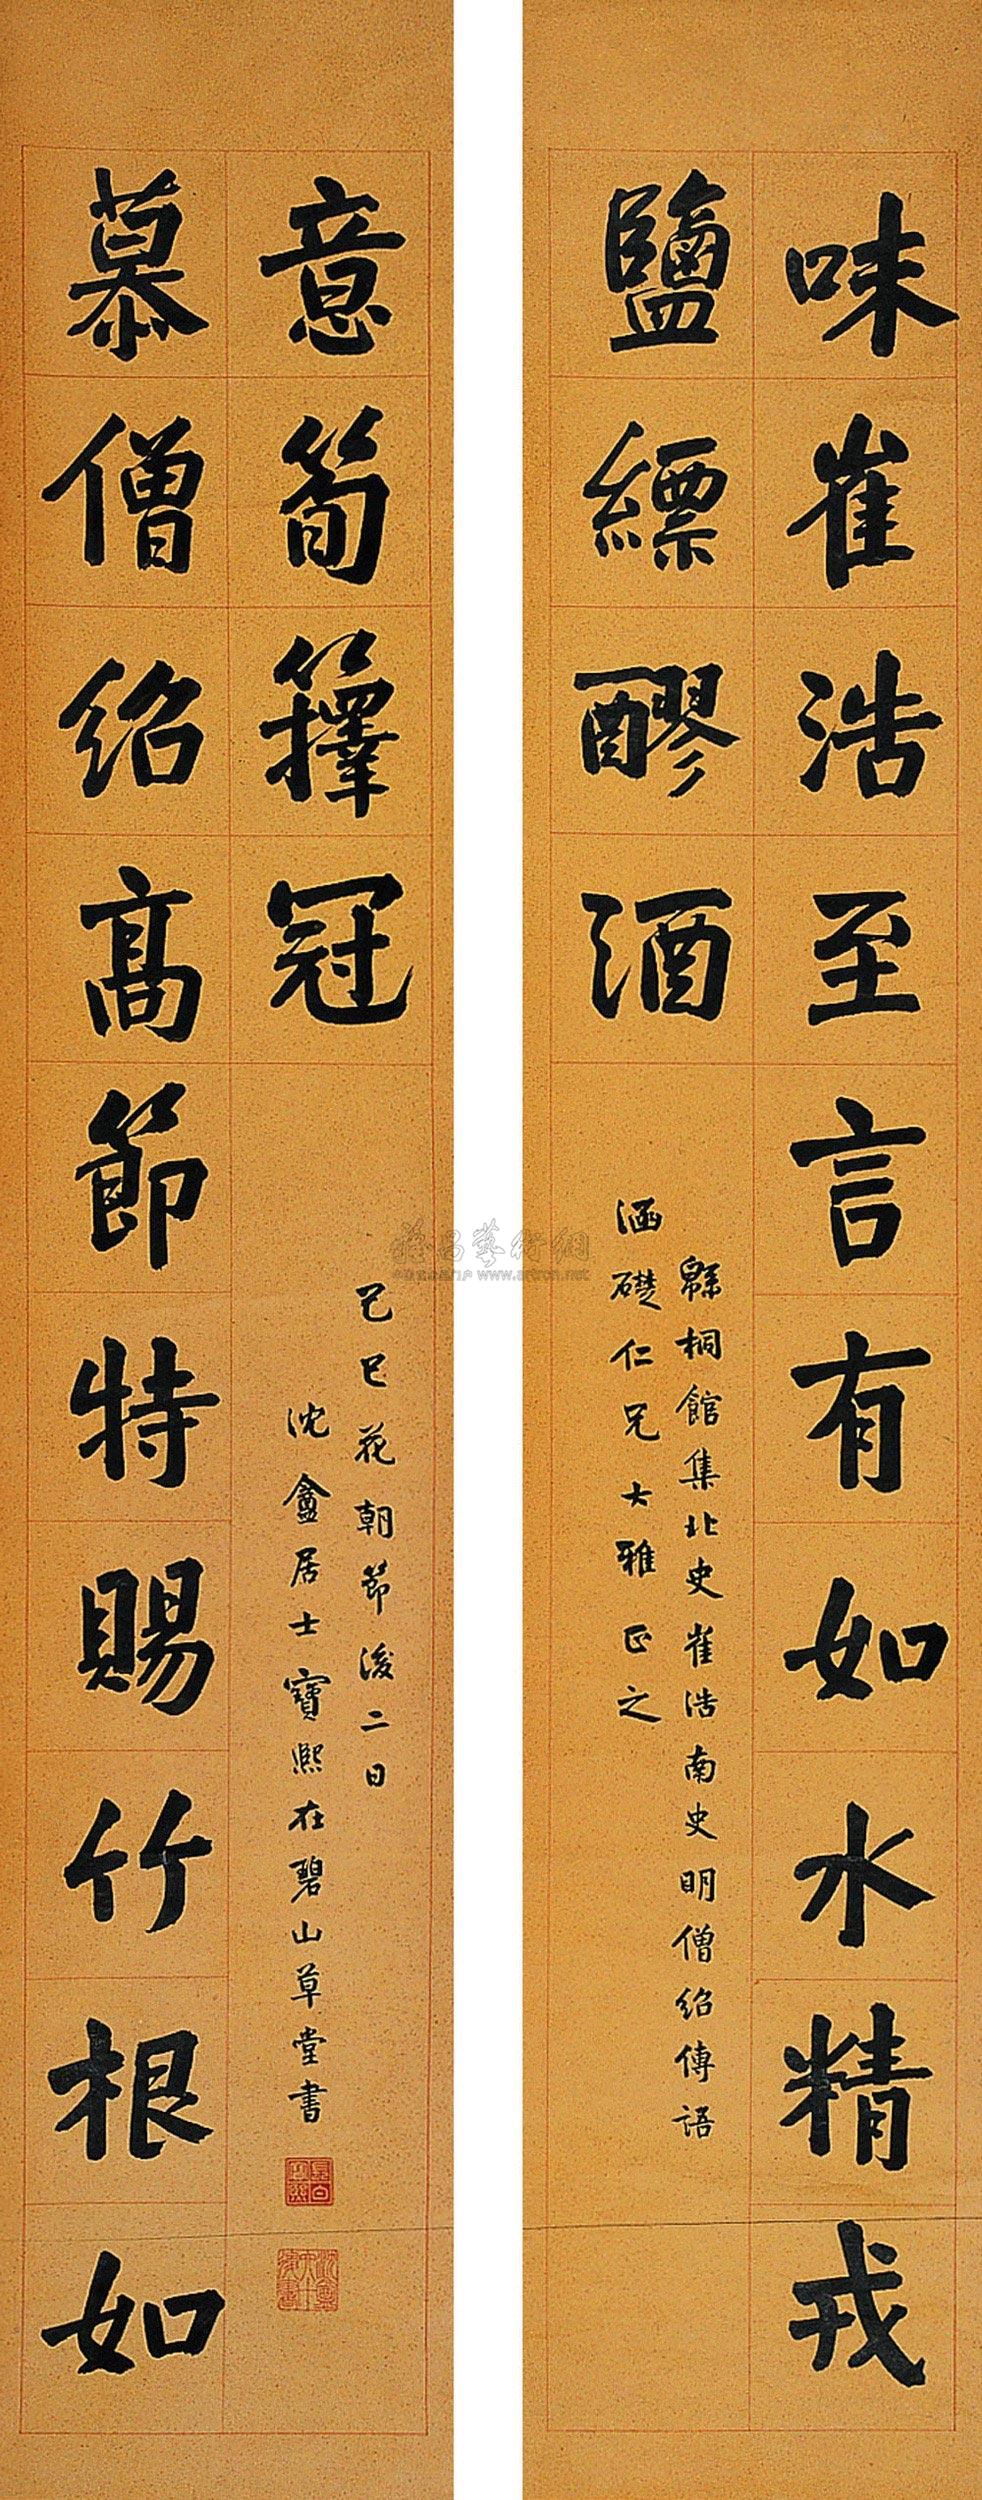 味崔浩至言有如水精戎
鹽縹醪酒
緜桐館集北史崔浩南史明僧紹傳語
涵礎仁兄大雅正之
慕僧紹高節特賜竹根如
意筍籜冠
己巳花朝節後二日
沈盦居士寶熙在碧山草堂書
雅昌藝術網
www.artron.net